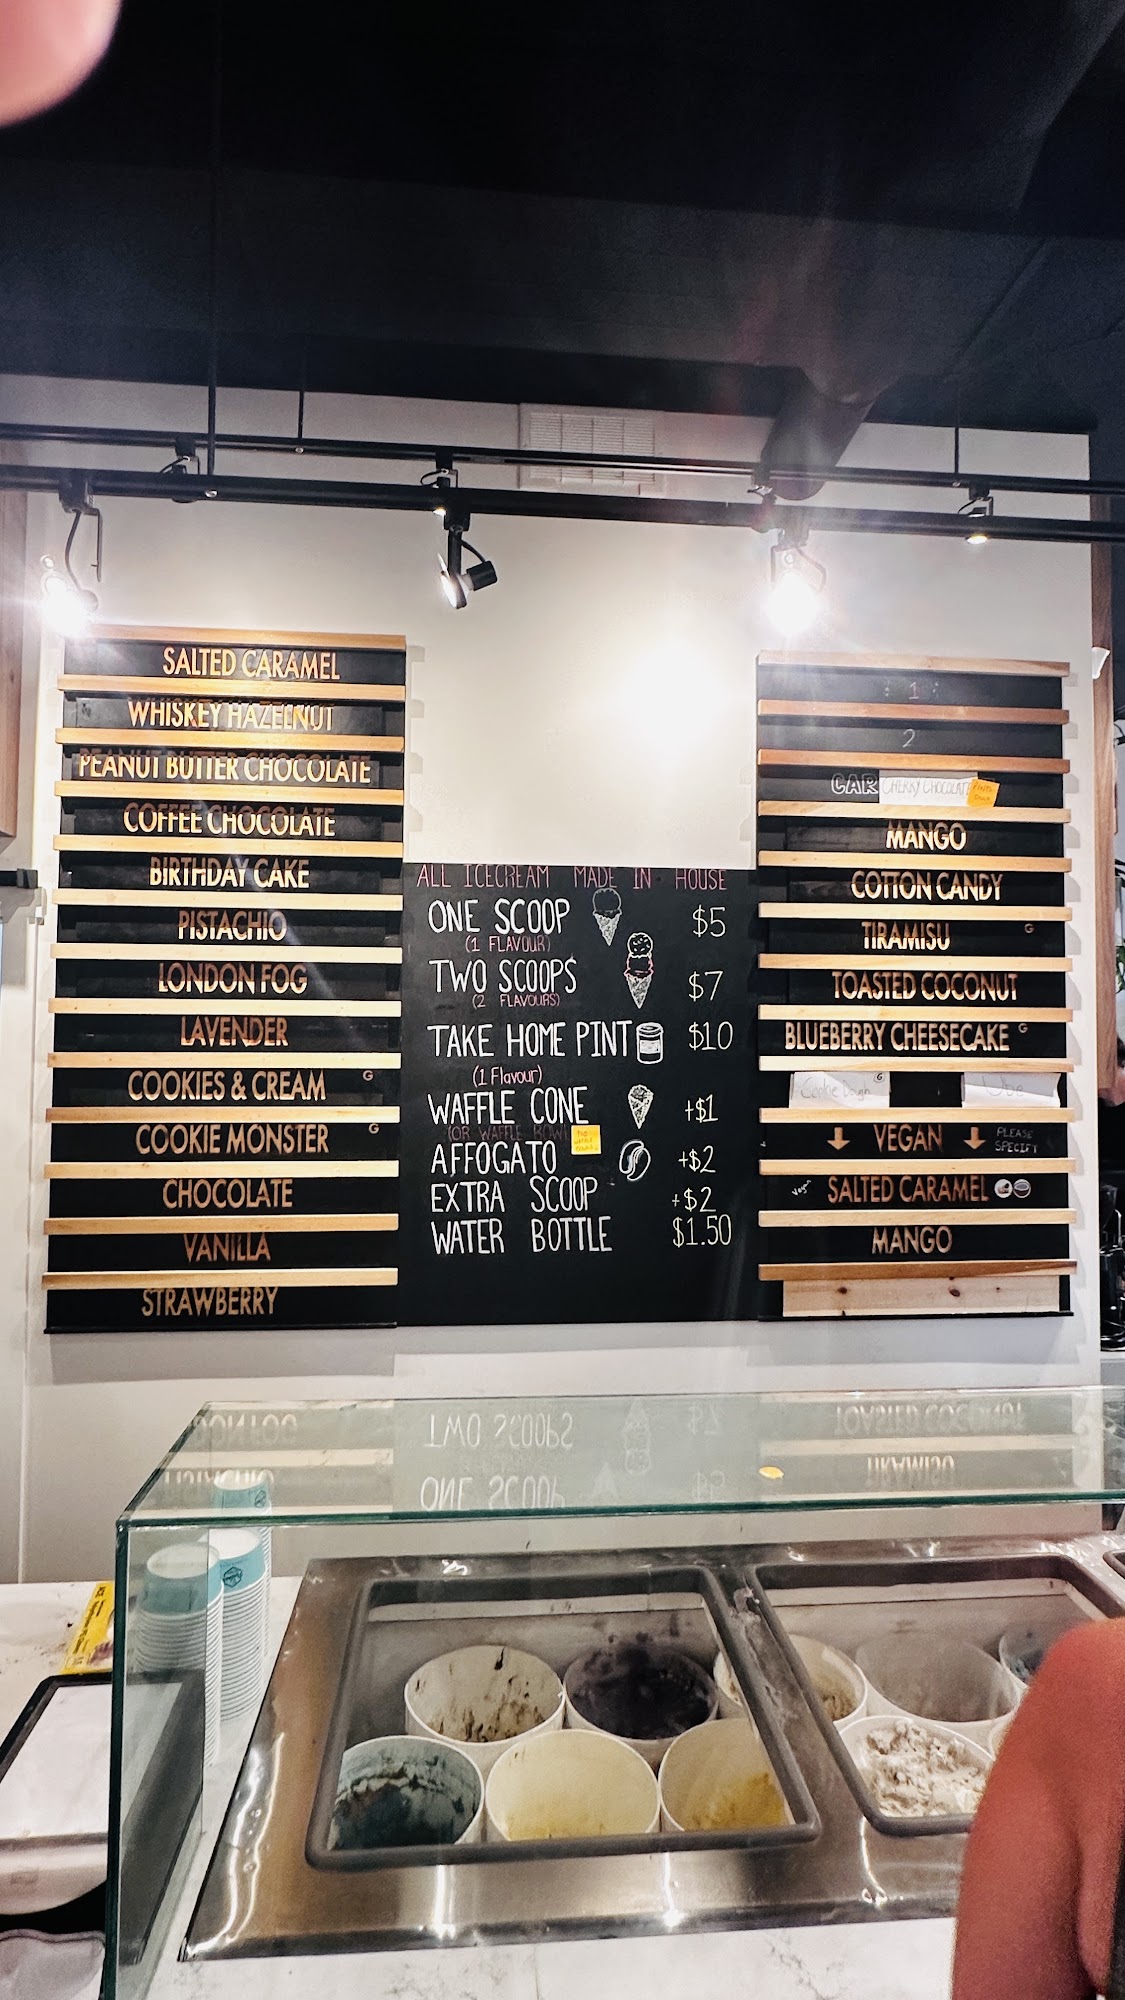 SALTED CARAMEL
WHISKEY HAZELNUT
PEANUT BUTTER CHOCOLATE
COFFEE CHOCOLATE
BIRTHDAY CAKE
PISTACHIO
LONDON FOG
LAVENDER
COOKIES & CREAM G
COOKIE MONSTER G
CHOCOLATE
VANILLA
STRAWBERRY
ALL ICECREAM MADE IN HOUSE
ONE SCOOP $5
(1 FLAVOUR)
TWO SCOOPS $7
(2 FLAVOURS)
TAKE HOME PINT $10
(1 Flavour)
WAFFLE CONE +$1
(OR WAFFLE BOWL
AFFOGATO +$2
EXTRA SCOOP +$2
WATER BOTTLE $1.50
1
2
CAR CHERRY CHOCOLATE
MANGO
COTTON CANDY
TIRAMISU G
TOASTED COCONUT
BLUEBERRY CHEESECAKE G
Cookie Dough G Ube
VEGAN PLEASE SPECIFY
Vegan SALTED CARAMEL
MANGO